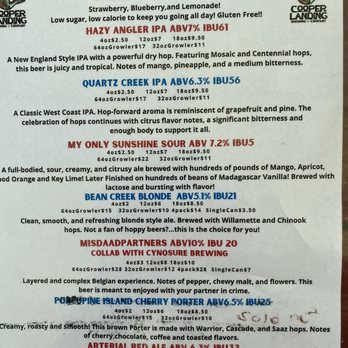 COOPER
LANDING
Strawberry, Blueberry,and Lemonade!
Low sugar, low calorie to keep you going all day! Gluten Free!!
HAZY ANGLER IPA ABV7% IBU61
4oz$2.50 12oz$7 18oz$9.50
64ozGrowler$17 32ozGrowler$11
A New England Style IPA with a powerful dry hop. Featuring Mosaic and Centennial hops,
this beer is juicy and tropical. Notes of mango, pineapple, and a medium bitterness.
QUARTZ CREEK IPA ABV6.3% IBU56
4oz$2.50 12oz$7 18oz$9.50
64ozGrowler$17 32ozGrowler$11
A Classic West Coast IPA. Hop-forward aroma is reminiscent of grapefruit and pine. The
celebration of hops continues with citrus flavor notes, a significant bitterness and
enough body to support it all.
MY ONLY SUNSHINE SOUR ABV 7.2% IBU5
4oz$2.50 12oz$7 18oz$9.50
64ozGrowler$22 32ozGrowler$11
A full-bodied, sour, creamy, and citrusy ale brewed with hundreds of pounds of Mango, Apricot,
ood Orange and Key Lime! Later Finished on hundreds of beans of Madagascar Vanilla! Brewed with
lactose and bursting with flavor!
BEAN CREEK BLONDE ABV5.1% IBU21
4oz$2 12oz$6 18oz$8.50
64ozGrowler$15 32ozGrowler$10 4pack$14 SingleCan$3.50
Clean, smooth, and refreshing blonde style ale. Brewed with Willamette and Chinook
hops. Not a fan of hoppy beers?...this is the choice for you!
MISDAADPARTNERS ABV10% IBU 20
COLLAB WITH CYNOSURE BREWING
4oz$3 12oz$8 18oz$10
64ozGrowler$28 32ozGrowler$12 4pack$28 SingleCan$7
Layered and complex Belgian experience. Notes of pepper, chewy malt, and flowers. This
beer is meant to enjoyed with your partner in crime.
PORCUPINE ISLAND CHERRY PORTER ABV6.5% IBU25
4oz$2 12oz$6 18oz$8.50
64ozGrowler$15 32ozGrowler$10
Creamy, roasty and smooth! This brown Porter is made with Warrior, Cascade, and Saaz hops. Notes
of cherry,chocolate, coffee and toasted flavors.
ARTERIAL RED ALE ABV 6.3% IBU32